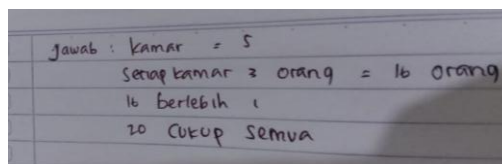 Jawab : kamar = 5
Setiap kamar 3 orang = 16 orang
16 berlebih 1
20 cukup semua